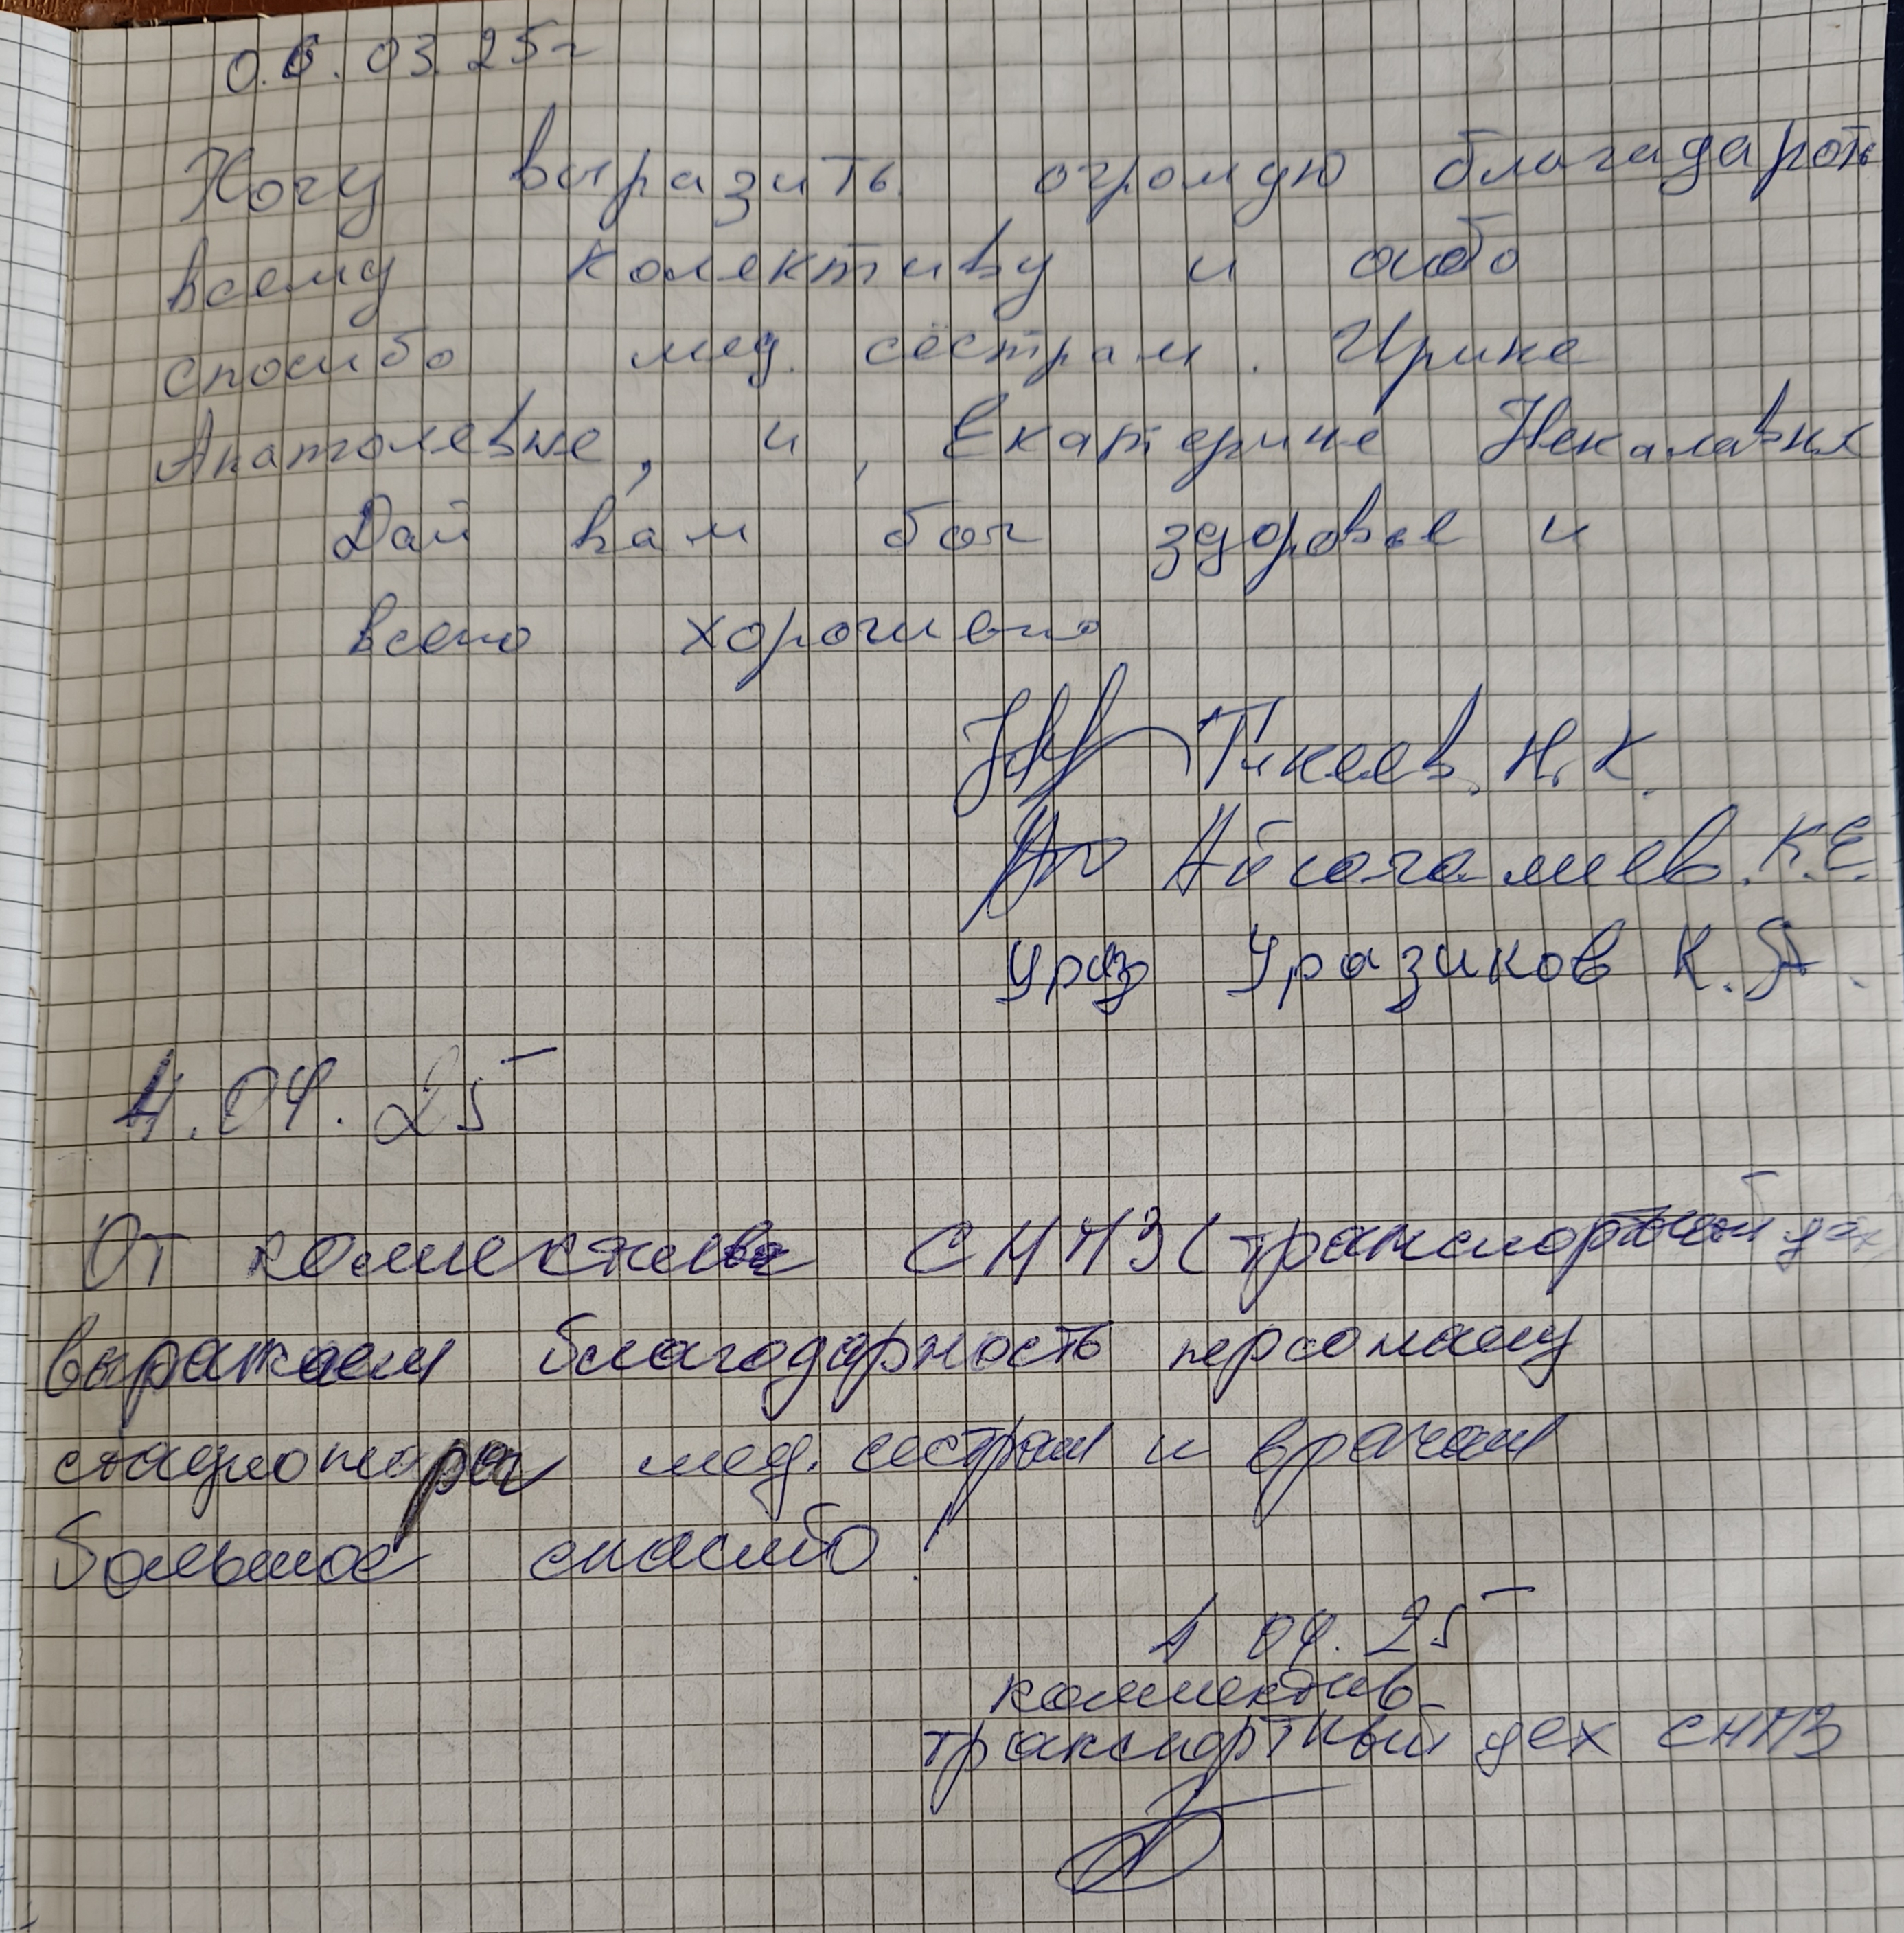 06.03.25г
Хочу выразить огромую благадароть
всему колективу и особо
спосибо мед. сёстрам. Ирине
Анатолевне, и, Екатерине Некалавне
Дай вам бог здоровье и
всего хорошего
Тикеев. Н. К.
Айсагалиев. К.Е.
Ураз Уразиков К. А.
1.04.25
От коллектива СНПЗ (транспортный цех)
выражаем благодарность персоналу
стационара мед. сестрам и врачам
большое спасибо!
1 04. 25
коллектив
транспортный цех СНПЗ